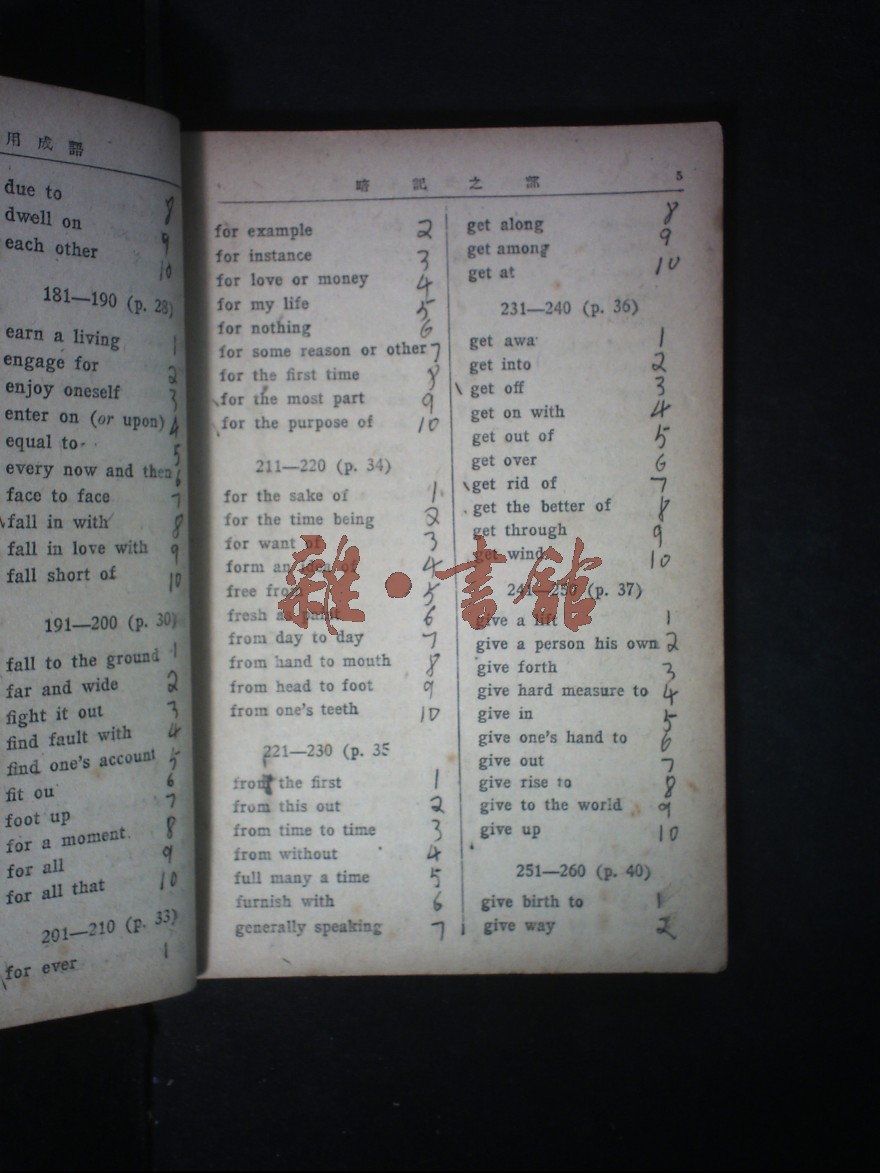 用成語
due to 8
dwell on 9
each other 10
181—190 (p. 28)
earn a living 1
engage for 2
enjoy oneself 3
enter on (or upon) 4
equal to 5
every now and then 6
face to face 7
fall in with 8
fall in love with 9
fall short of 10
191—200 (p. 30)
fall to the ground 1
far and wide 2
fight it out 3
find fault with 4
find one's account 5
fit ou 6
foot up 7
for a moment 8
for all 9
for all that 10
201—210 (p. 33)
for ever 1
暗記之部 5
for example 2
for instance 3
for love or money 4
for my life 5
for nothing 6
for some reason or other 7
for the first time 8
for the most part 9
for the purpose of 10
211—220 (p. 34)
for the sake of 1
for the time being 2
for want of 3
form an idea of 4
free from 5
fresh as paint 6
from day to day 7
from hand to mouth 8
from head to foot 9
from one's teeth 10
221—230 (p. 35
from the first 1
from this out 2
from time to time 3
from without 4
full many a time 5
furnish with 6
generally speaking 7
get along 8
get among 9
get at 10
231—240 (p. 36)
get awa 1
get into 2
get off 3
get on with 4
get out of 5
get over 6
get rid of 7
get the better of 8
get through 9
get wind 10
241—250 (p. 37)
give a lift 1
give a person his own 2
give forth 3
give hard measure to 4
give in 5
give one's hand to 6
give out 7
give rise to 8
give to the world 9
give up 10
251—260 (p. 40)
give birth to 1
give way 2
雜·書館